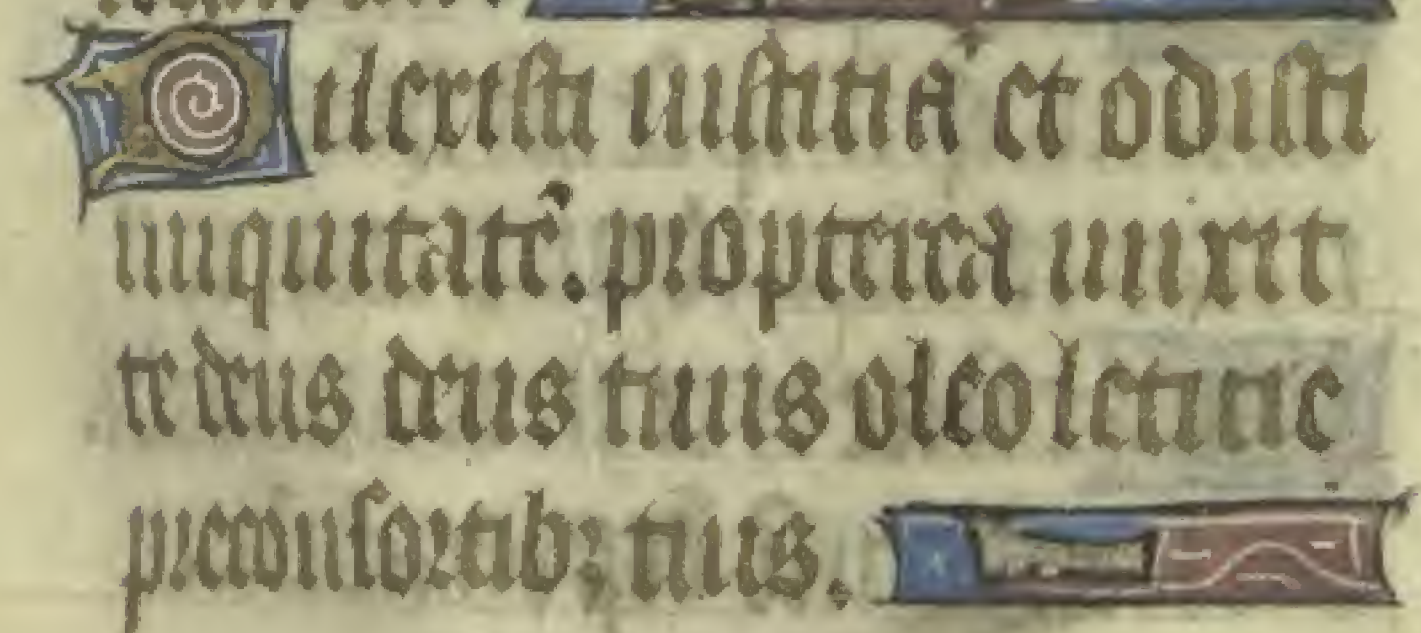 Dilexisti iusticiā et odisti
iniquitatē. propterea unxit
te deus deus tuus oleo leticie
pre consortib; tuis.